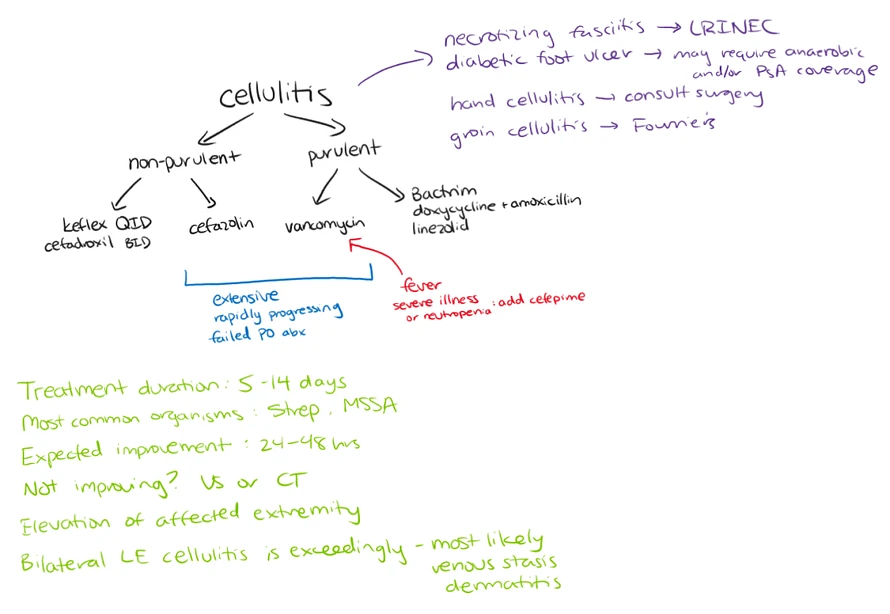 necrotizing fasciitis → LRINEC
diabetic foot ulcer → may require anaerobic
and/or PsA coverage
hand cellulitis → consult surgery
groin cellulitis → Fournier's
cellulitis
non-purulent
purulent
keflex QID
cefadroxil BID
cefazolin
vancomycin
Bactrim
doxycycline + amoxicillin
linezolid
extensive
rapidly progressing
failed PO abx
fever
severe illness : add cefepime
or neutropenia
Treatment duration: 5-14 days
Most common organisms: Strep, MSSA
Expected improvement: 24-48 hrs
Not improving? US or CT
Elevation of affected extremity
Bilateral LE cellulitis is exceedingly - most likely
venous stasis
dermatitis